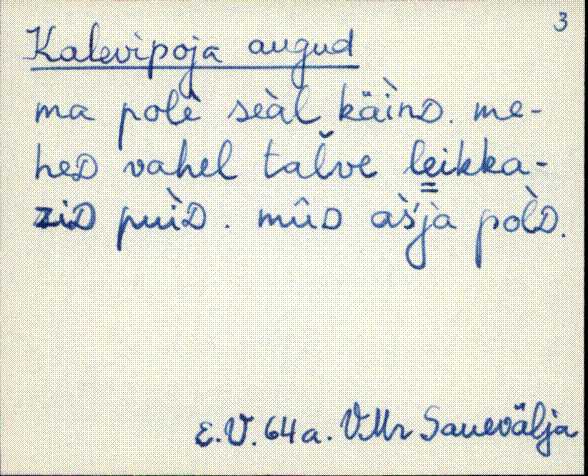 3
Kalevipoja augud
ma polè seàl käìnD. me-
heD vahel talve leikka-
ziD puìD. mûD aš́ja pol̀D.
E.V. 64 a. VMr Sauevälja